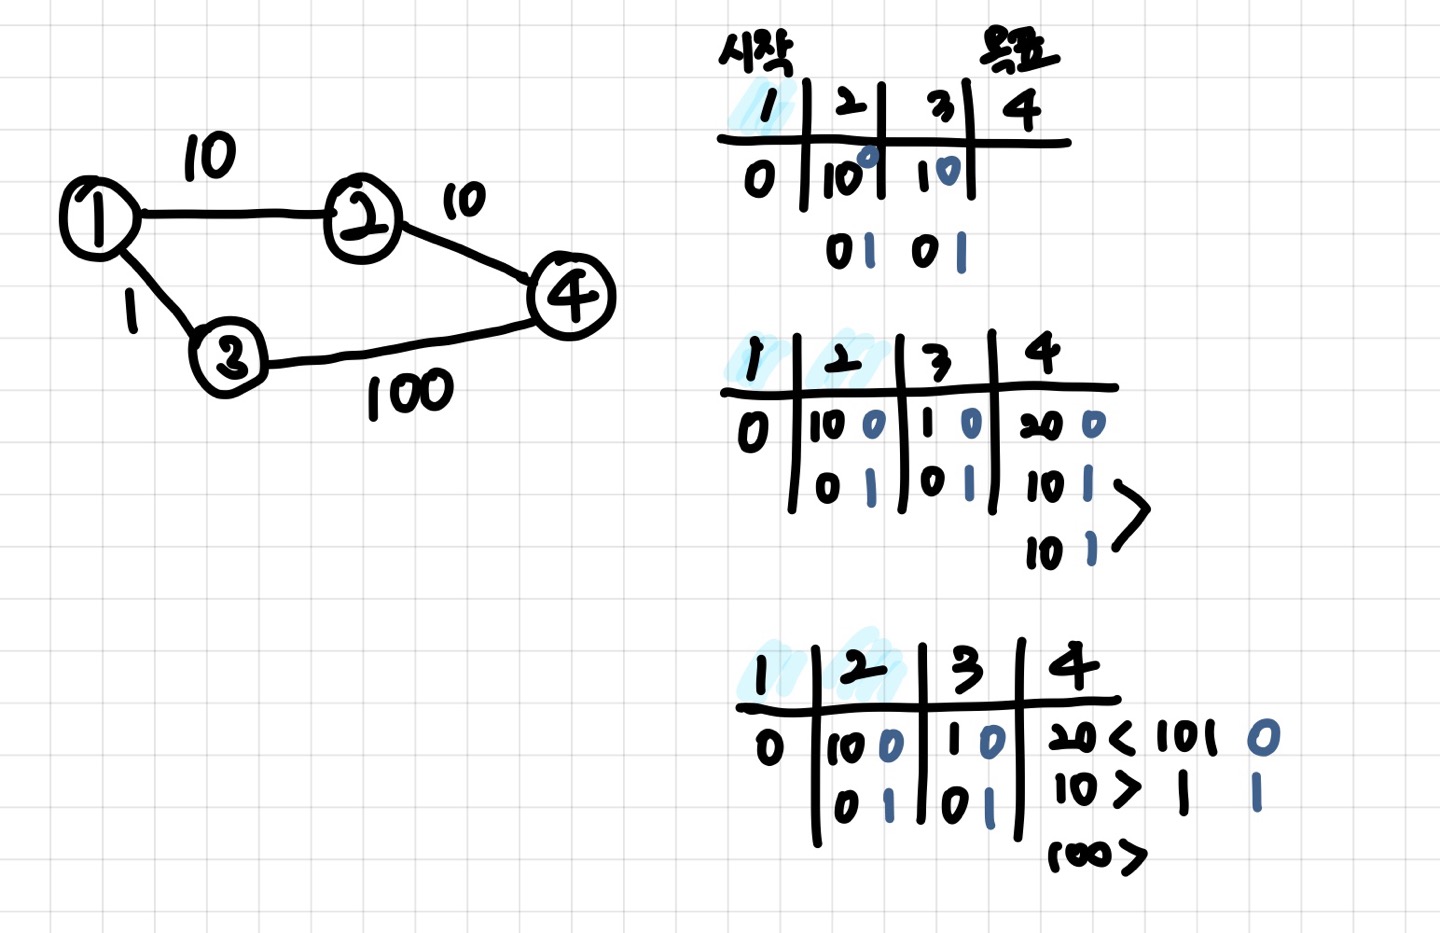 10
1
2
10
4
1
3
100
시작 목표
1 2 3 4
0 10 0 1 0
0 1 0 1
1 2 3 4
0 10 0 1 0 20 0
0 1 0 1 10 1
10 1 >
1 2 3 4
0 10 0 1 0 20 < 101 0
0 1 0 1 10 > 1 1
100 >